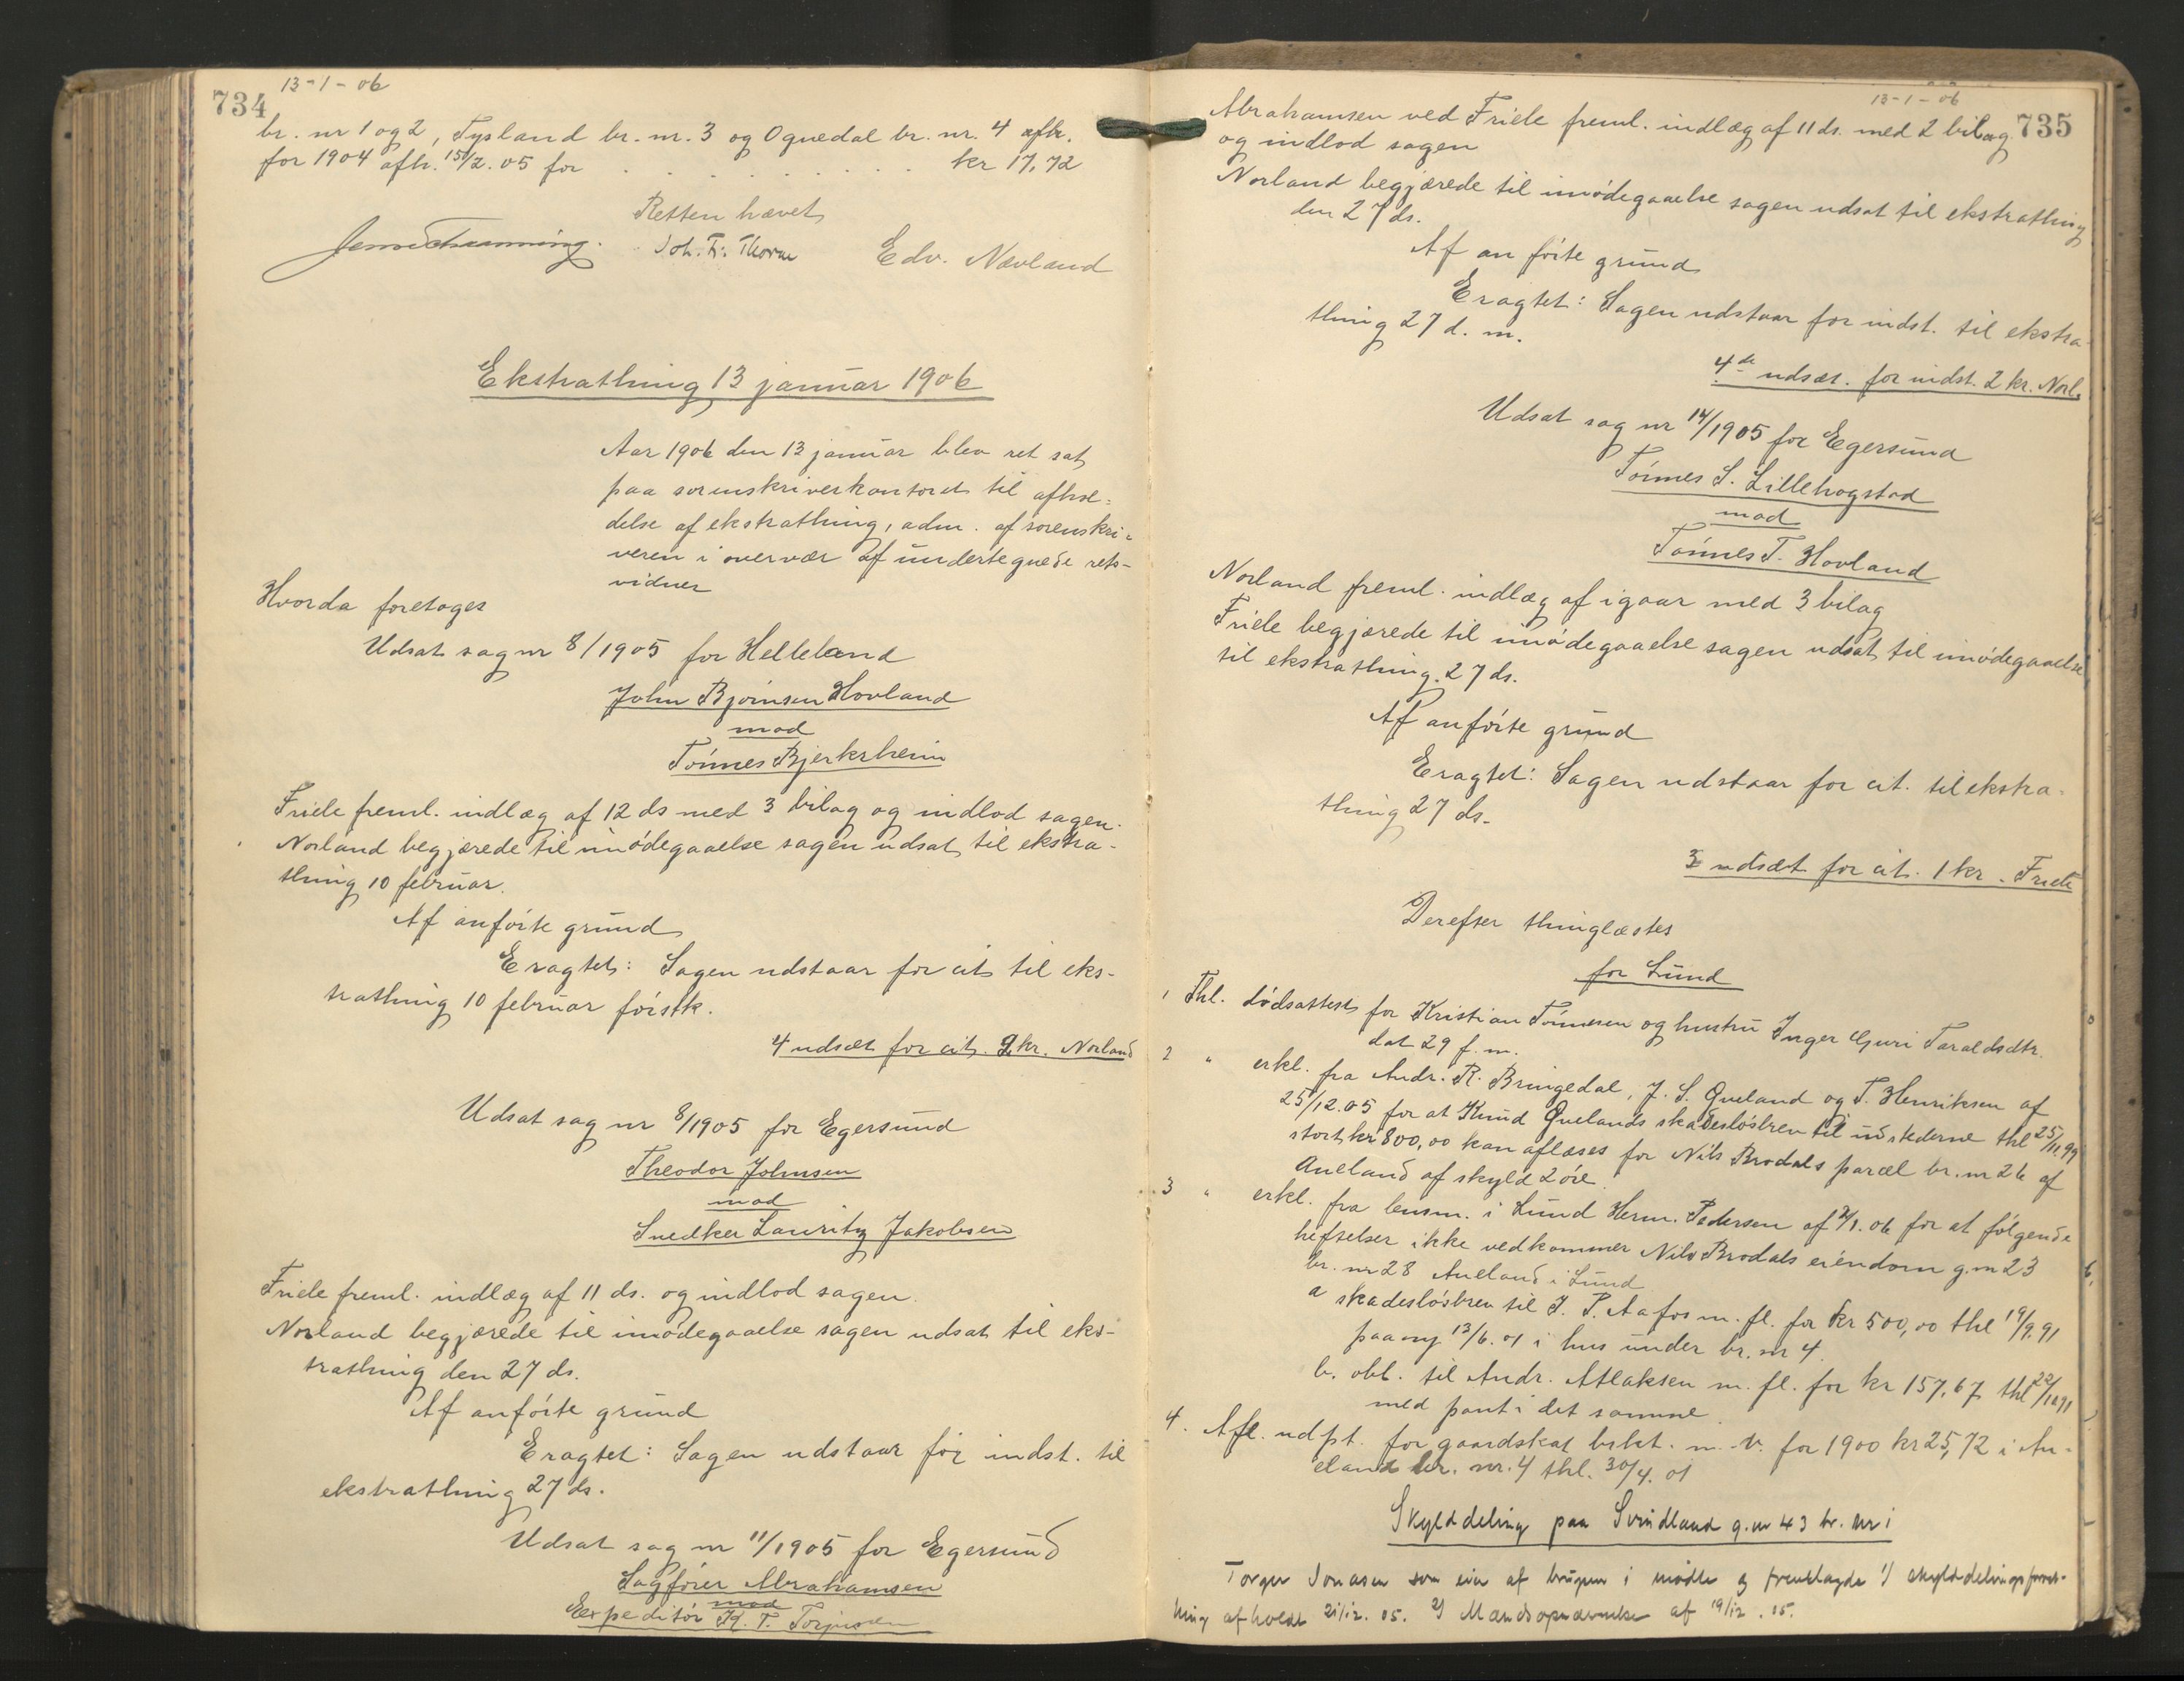 734
13-1-06
br. nr 1 og 2, Tysland br. nr. 3 og Ognedal br. nr. 4 afh.
for 1904 afh. 15/2.05 for . . . . . . . kr 17,72
Retten hævet
Joh. Fr. Thorne Edv. Navland
Ekstrathing 13 januar 1906
Aar 1906 den 13 januar blev ret sat
paa sorenskriverkontoret til afhol-
delse af ekstrathing, adm. af sorenskri-
veren i overvær af undertegnede rets-
vidner
Hvorda foretoges
Udsat sag nr 8/1905 for Helleland
John Bjørnsen Hovland
mod
Tønnes Bjerkrheim
Friele freml. indlæg af 12 ds med 3 bilag og indlod sagen.
Norland begjærede til imødegaaelse sagen udsat til ekstra-
thing 10 februar.
Af anførte grund
Eragtet: Sagen udstaar for cit. til eks-
trathing 10 februar førstk.
4 udsæt for cit. 2 kr. Norland
Udsat sag nr 8/1905 for Egersund
Theodor Johnsen
mod
Snedker Lauritz Jakobsen
Friele freml. indlæg af 11 ds. og indlod sagen.
Norland begjærede til imødegaaelse sagen udsat til eks-
trathing den 27 ds.
Af anførte grund
Eragtet: Sagen udstaar for indst. til
ekstrathing 27 ds.
Udsat sag nr 11/1905 for Egersund
Sagfører Abrahamsen
mod
Expeditør K. T. Torjusen
13-1-06
735
Abrahamsen ved Friele freml. indlæg af 11 ds. med 2 bilag
og indlod sagen
Norland begjærede til imødegaaelse sagen udsat til ekstrathing
den 27 ds.
Af anførte grund
Eragtet: Sagen udstaar for indst. til ekstra-
thing 27 d. m.
4de udsæt. for indst. 2 kr. Norl.
Udsat sag nr 14/1905 for Egersund
Tønnes S. Lillehogstad
mod
Tønnes T. Hovland
Norland freml. indlæg af igaar med 3 bilag
Friele begjærede til imødegaaelse sagen udsat til imødegaaelse
til ekstrathing 27 ds.
Af anførte grund
Eragtet: Sagen udstaar for cit. til ekstra-
thing 27 ds.
3 udsæt for cit. 1 kr. Friele
Derefter thinglæstes
for Lund
1 Thl. dødsattest for Kristian Tønnesen og hustru Inger Guri Taraldsdtr.
dat 29 f. m.
2 " erkl. fra Andr. R. Bringedal, J. S. Qveland og T. Henriksen af
25/12.05 for at Knud Qvelands skadesløsbrev til udstederne thl 25/11.99
stort kr 800,00 kan aflæses for Nils Brodals parcel br. nr 26 af
Aueland af skyld 2 øre.
3 " erkl. fra lensm. i Lund Herm. Pedersen af 2/1.06 for at følgende
heftelser ikke vedkommer Nils Brodals eiendom g. nr 23
br. nr 28 Aueland i Lund
a skadesløsbrev til J. P. Aafos m. fl. for kr 500,00 thl 19/9.91
paa ny 13/6.01 i hus under br. nr 4.
b. obl. til Andr. Atlaksen m. fl. for kr 157,67 thl 22/12 91
med pant i det samme.
4. Afl. udpt. for gaardskat brkt. m. v. for 1900 kr 25,72 i Au-
eland br. nr. 4 thl. 30/4.01
Skylddeling paa Svindland g. nr 43 br. nr 1
Torger Jonasen som eier af brugen i mødte og fremlagde 1) skylddelingsforret-
ning afholdt 21/12.05. 2) Mandsopnævnelse af 19/12.05.